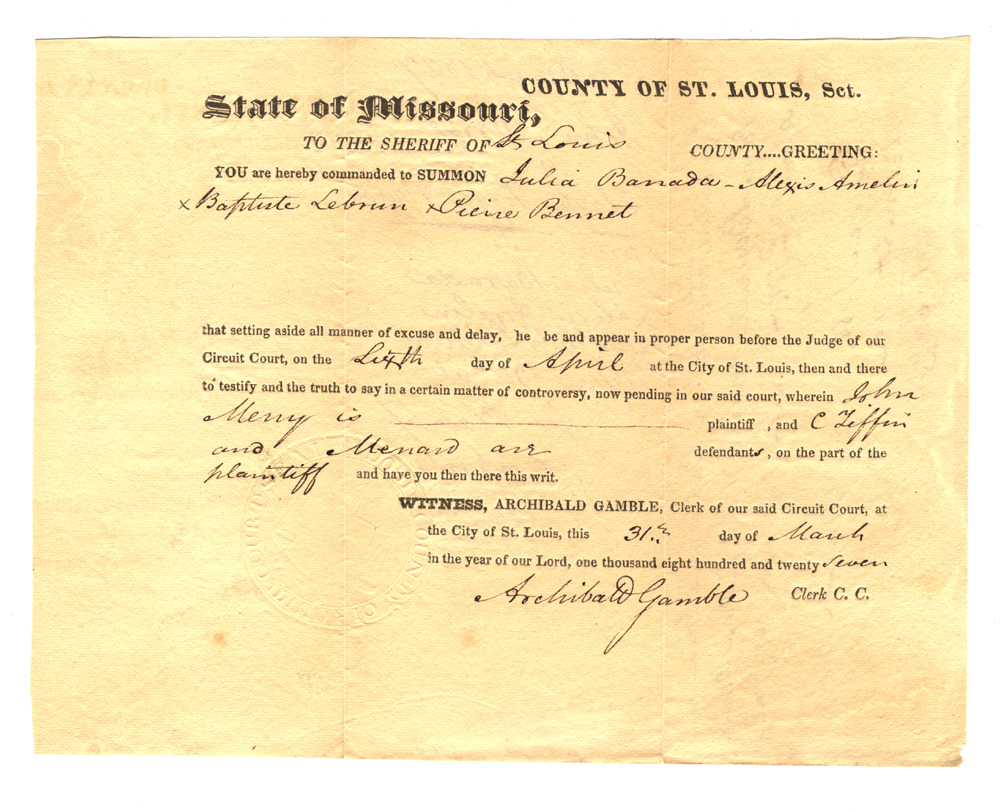 COUNTY OF ST. LOUIS, Sct.
State of Missouri,
TO THE SHERIFF OF St Louis COUNTY....GREETING:
YOU are hereby commanded to SUMMON Julia Barrada - Alexis Amelin
x Baptiste Lebrun x Pierre Bennet
that setting aside all manner of excuse and delay, he be and appear in proper person before the Judge of our
Circuit Court, on the Sixth day of April at the City of St. Louis, then and there
to testify and the truth to say in a certain matter of controversy, now pending in our said court, wherein John
Merry is plaintiff , and C Tiffin
and Menard are defendants, on the part of the
plaintiff and have you then there this writ.
WITNESS, ARCHIBALD GAMBLE, Clerk of our said Circuit Court, at
the City of St. Louis, this 31st day of March
in the year of our Lord, one thousand eight hundred and twenty seven
Archibald Gamble Clerk C. C.